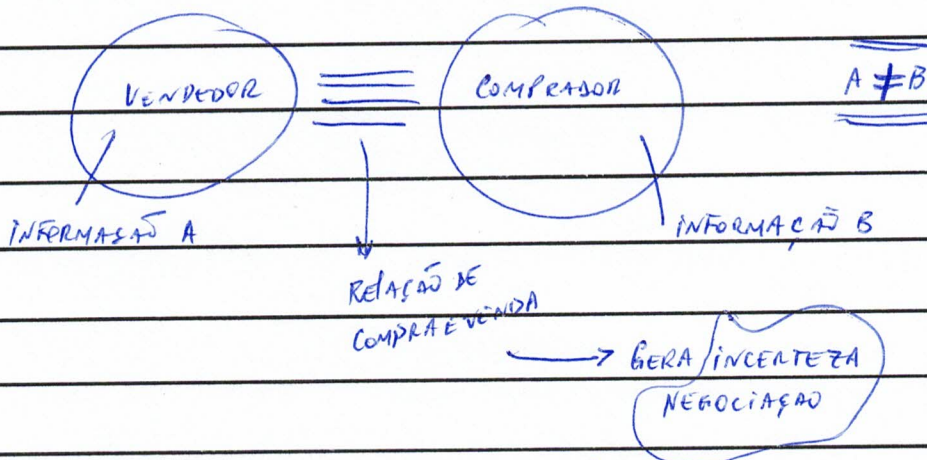 VENDEDOR
COMPRADOR
A ≠ B
INFORMAÇÃO A
INFORMAÇÃO B
RELAÇÃO DE
COMPRA E VENDA
GERA INCERTEZA
NEGOCIAÇÃO